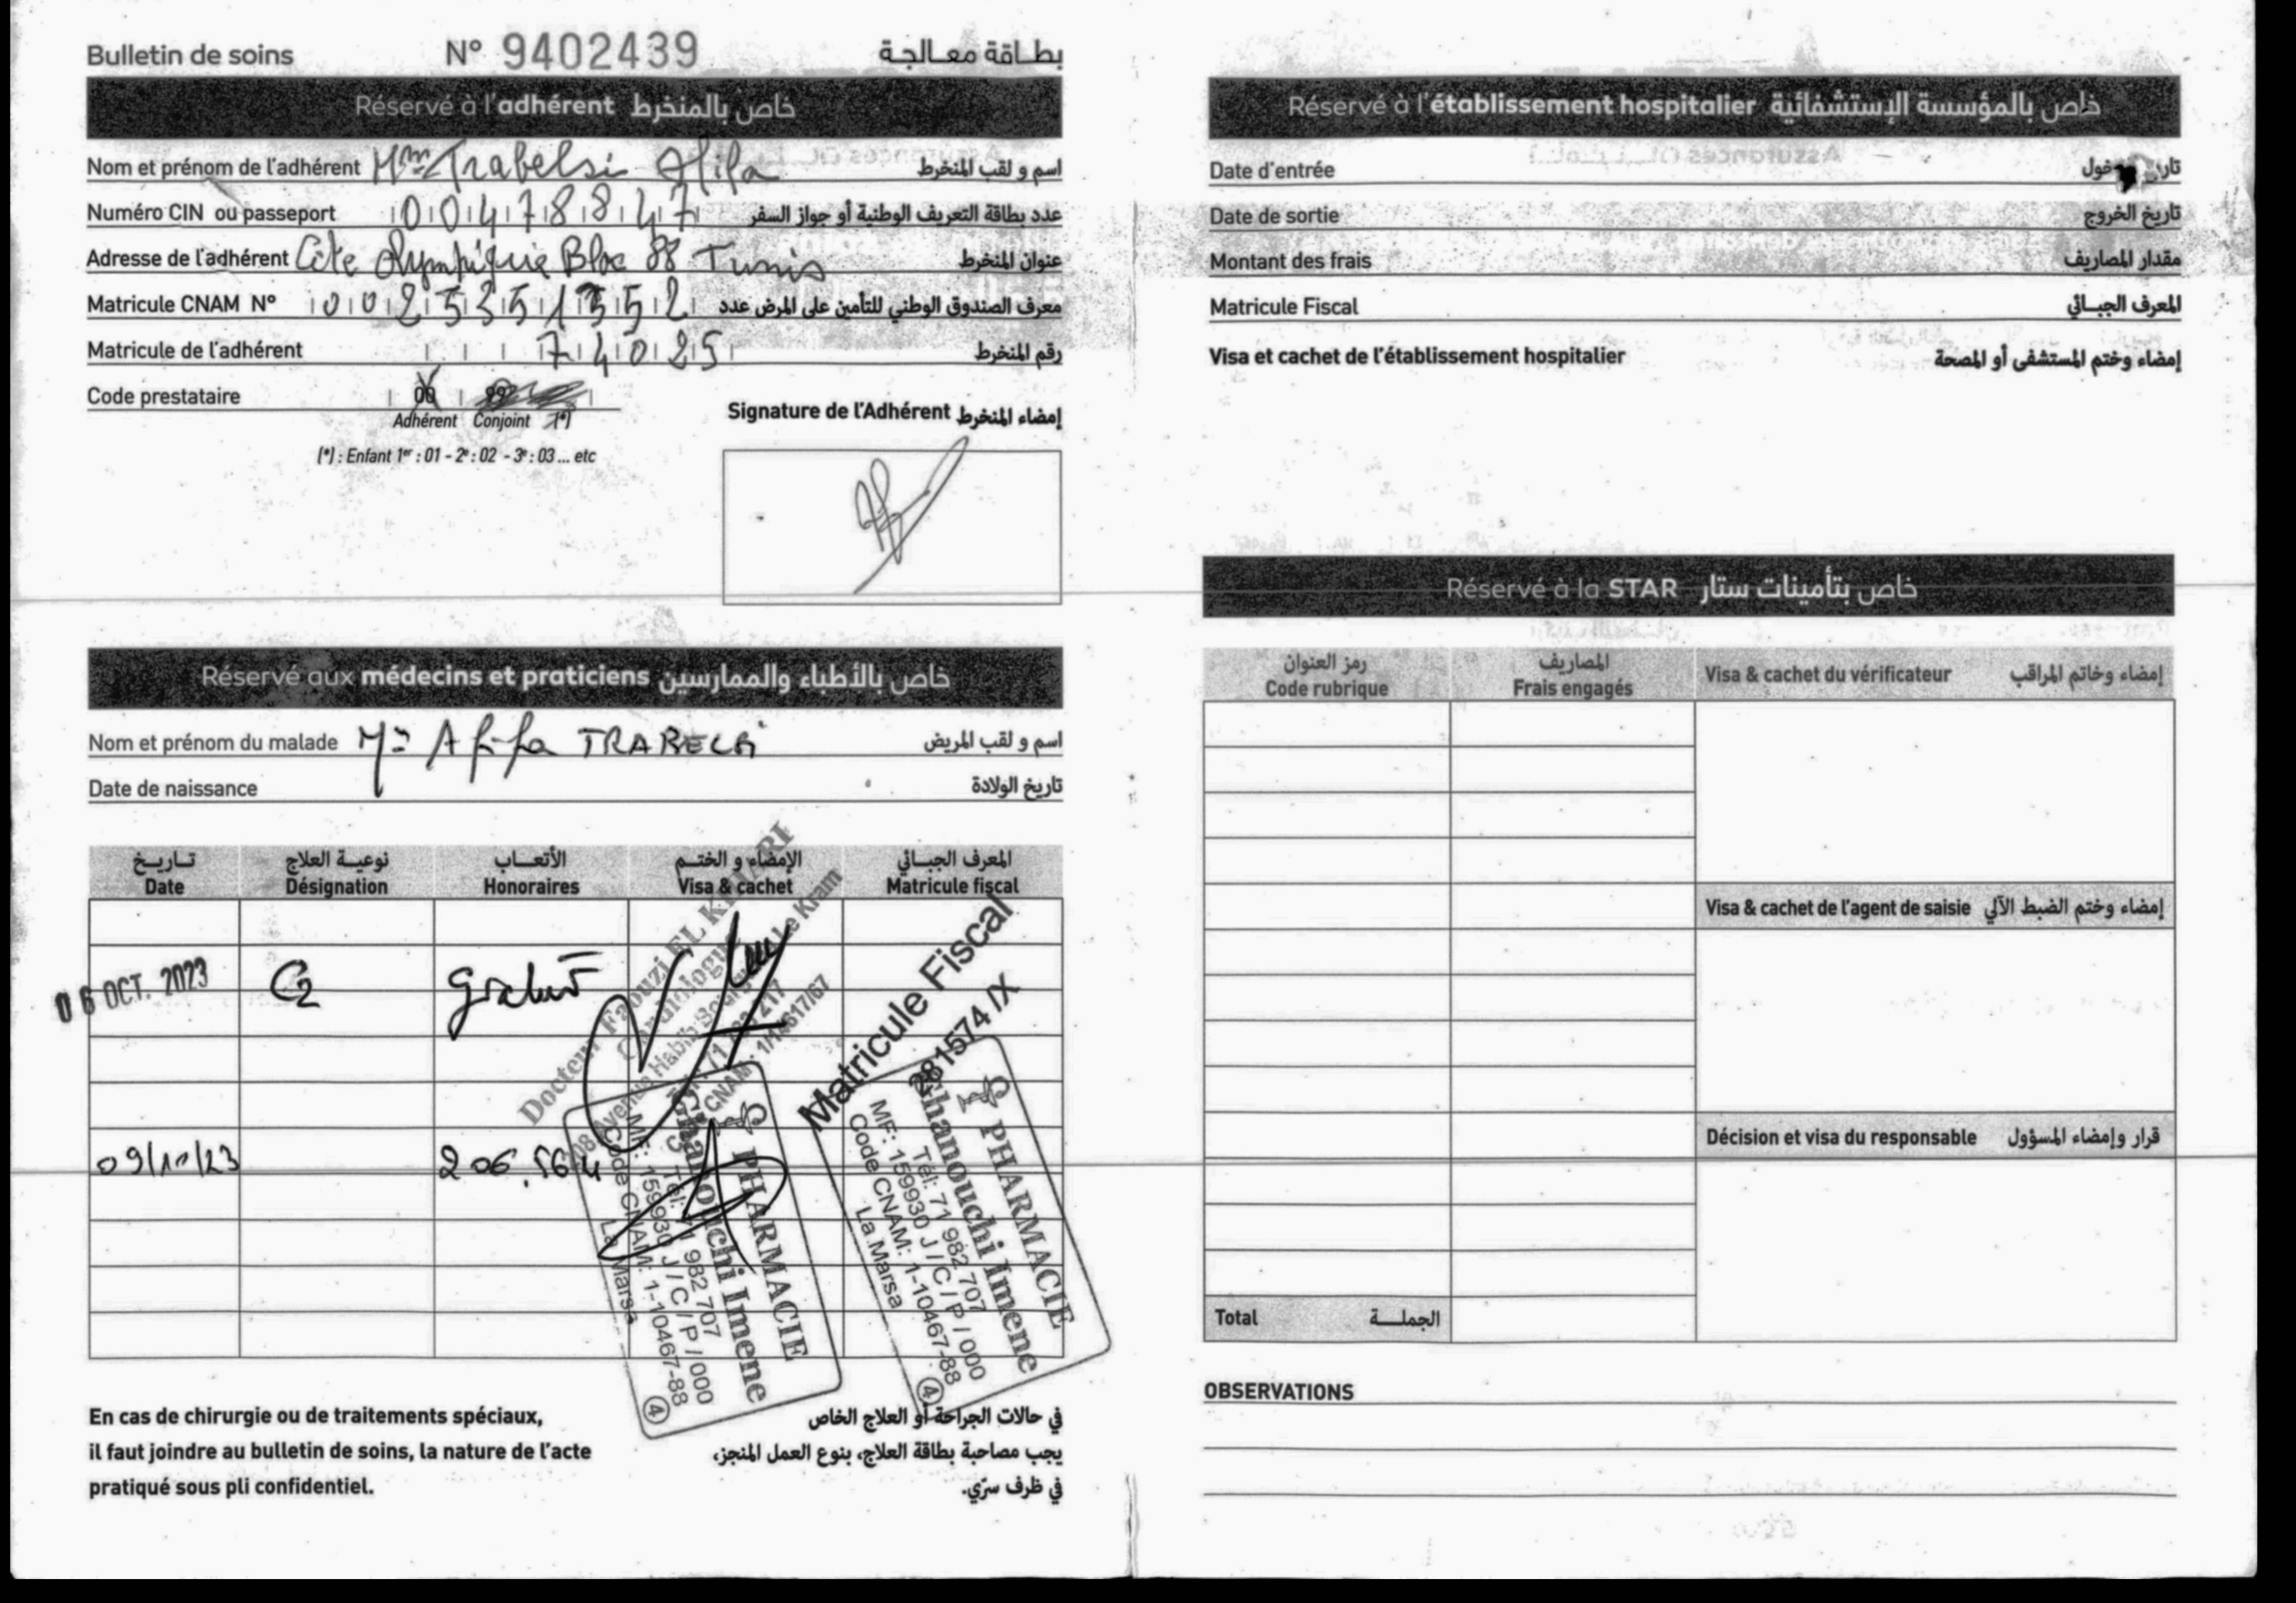 Bulletin de soins N° 9402439 بطاقة معالجة
Réservé à l'adhérent خاص بالمنخرط
Nom et prénom de l'adhérent Mme Trabelsi Afifa اسم و لقب المنخرط
Numéro CIN ou passeport 00478847 عدد بطاقة التعريف الوطنية أو جواز السفر
Adresse de l'adhérent Cité Olympique Bloc 88 Tunis عنوان المنخرط
Matricule CNAM N° معرف الصندوق الوطني للتأمين على المرض عدد
Matricule de l'adhérent 74025 رقم المنخرط
Code prestataire 00 99
Adhérent Conjoint (*)
(*) : Enfant 1er : 01 - 2e : 02 - 3e : 03 ... etc
Signature de l'Adhérent إمضاء المنخرط
Réservé aux médecins et praticiens خاص بالأطباء والممارسين
Nom et prénom du malade Me Afifa TRABELSI اسم و لقب المريض
Date de naissance تاريخ الولادة
تاريخ نوعية العلاج الأتعاب الإمضاء و الختم المعرف الجبائي
Date Désignation Honoraires Visa & cachet Matricule fiscal
06 OCT. 2023 C2 gratuit
Docteur Faouzi EL
Cardiologue
Avenue Habib Bourguiba Le Kram
Matricule Fiscal
281574 /X
09/10/23 206.564
PHARMACIE
Ghanouchi Imene
Tél: 71 982 707
MF: 159930 J / C / P / 000
Code CNAM: 1-10467-88
La Marsa
4
PHARMACIE
Ghanouchi Imene
Tél: 71 982 707
MF: 159930 J / C / P / 000
Code CNAM: 1-10467-88
La Marsa
4
En cas de chirurgie ou de traitements spéciaux,
il faut joindre au bulletin de soins, la nature de l'acte
pratiqué sous pli confidentiel.
في حالات الجراحة أو العلاج الخاص
يجب مصاحبة بطاقة العلاج، بنوع العمل المنجز،
في ظرف سرّي.
Réservé à l'établissement hospitalier خاص بالمؤسسة الإستشفائية
Date d'entrée
Date de sortie تاريخ الخروج
Montant des frais مقدار المصاريف
Matricule Fiscal المعرف الجبائي
Visa et cachet de l'établissement hospitalier إمضاء وختم المستشفى أو المصحة
Réservé à la STAR خاص بتأمينات ستار
رمز العنوان المصاريف
Code rubrique Frais engagés Visa & cachet du vérificateur إمضاء وخاتم المراقب
Visa & cachet de l'agent de saisie إمضاء وختم الضبط الآلي
Décision et visa du responsable قرار وإمضاء المسؤول
Total الجملة
OBSERVATIONS